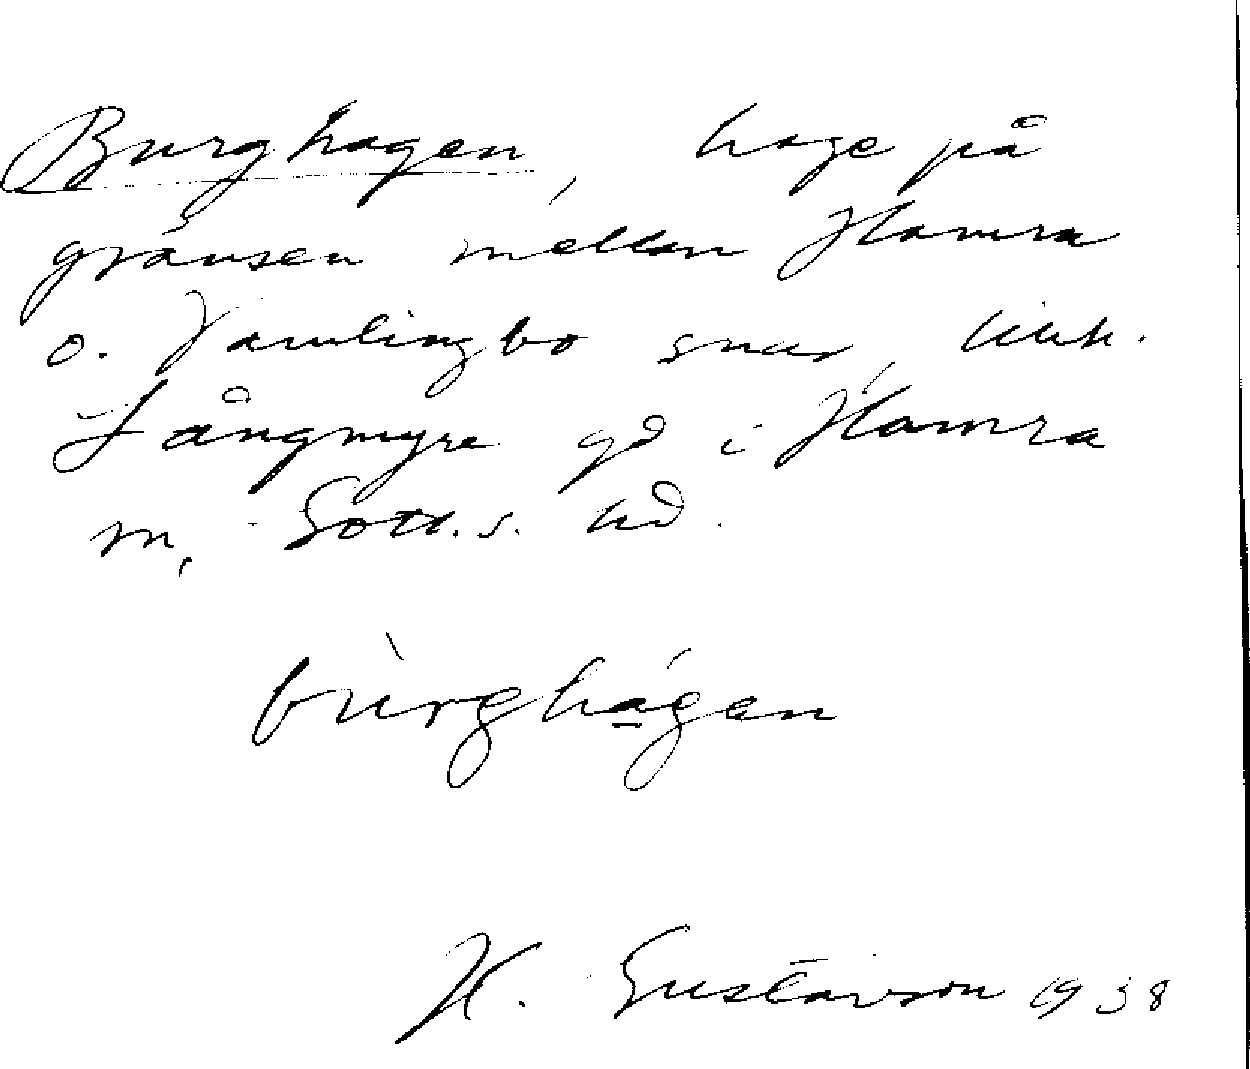 Burghagen, hage på
gränsen mellan Hamra
o. Vamlingbo snar,
Långmyre gd i Hamra
m, Gotl. s. hd.
bùrghágen
H. Gustavson 1938